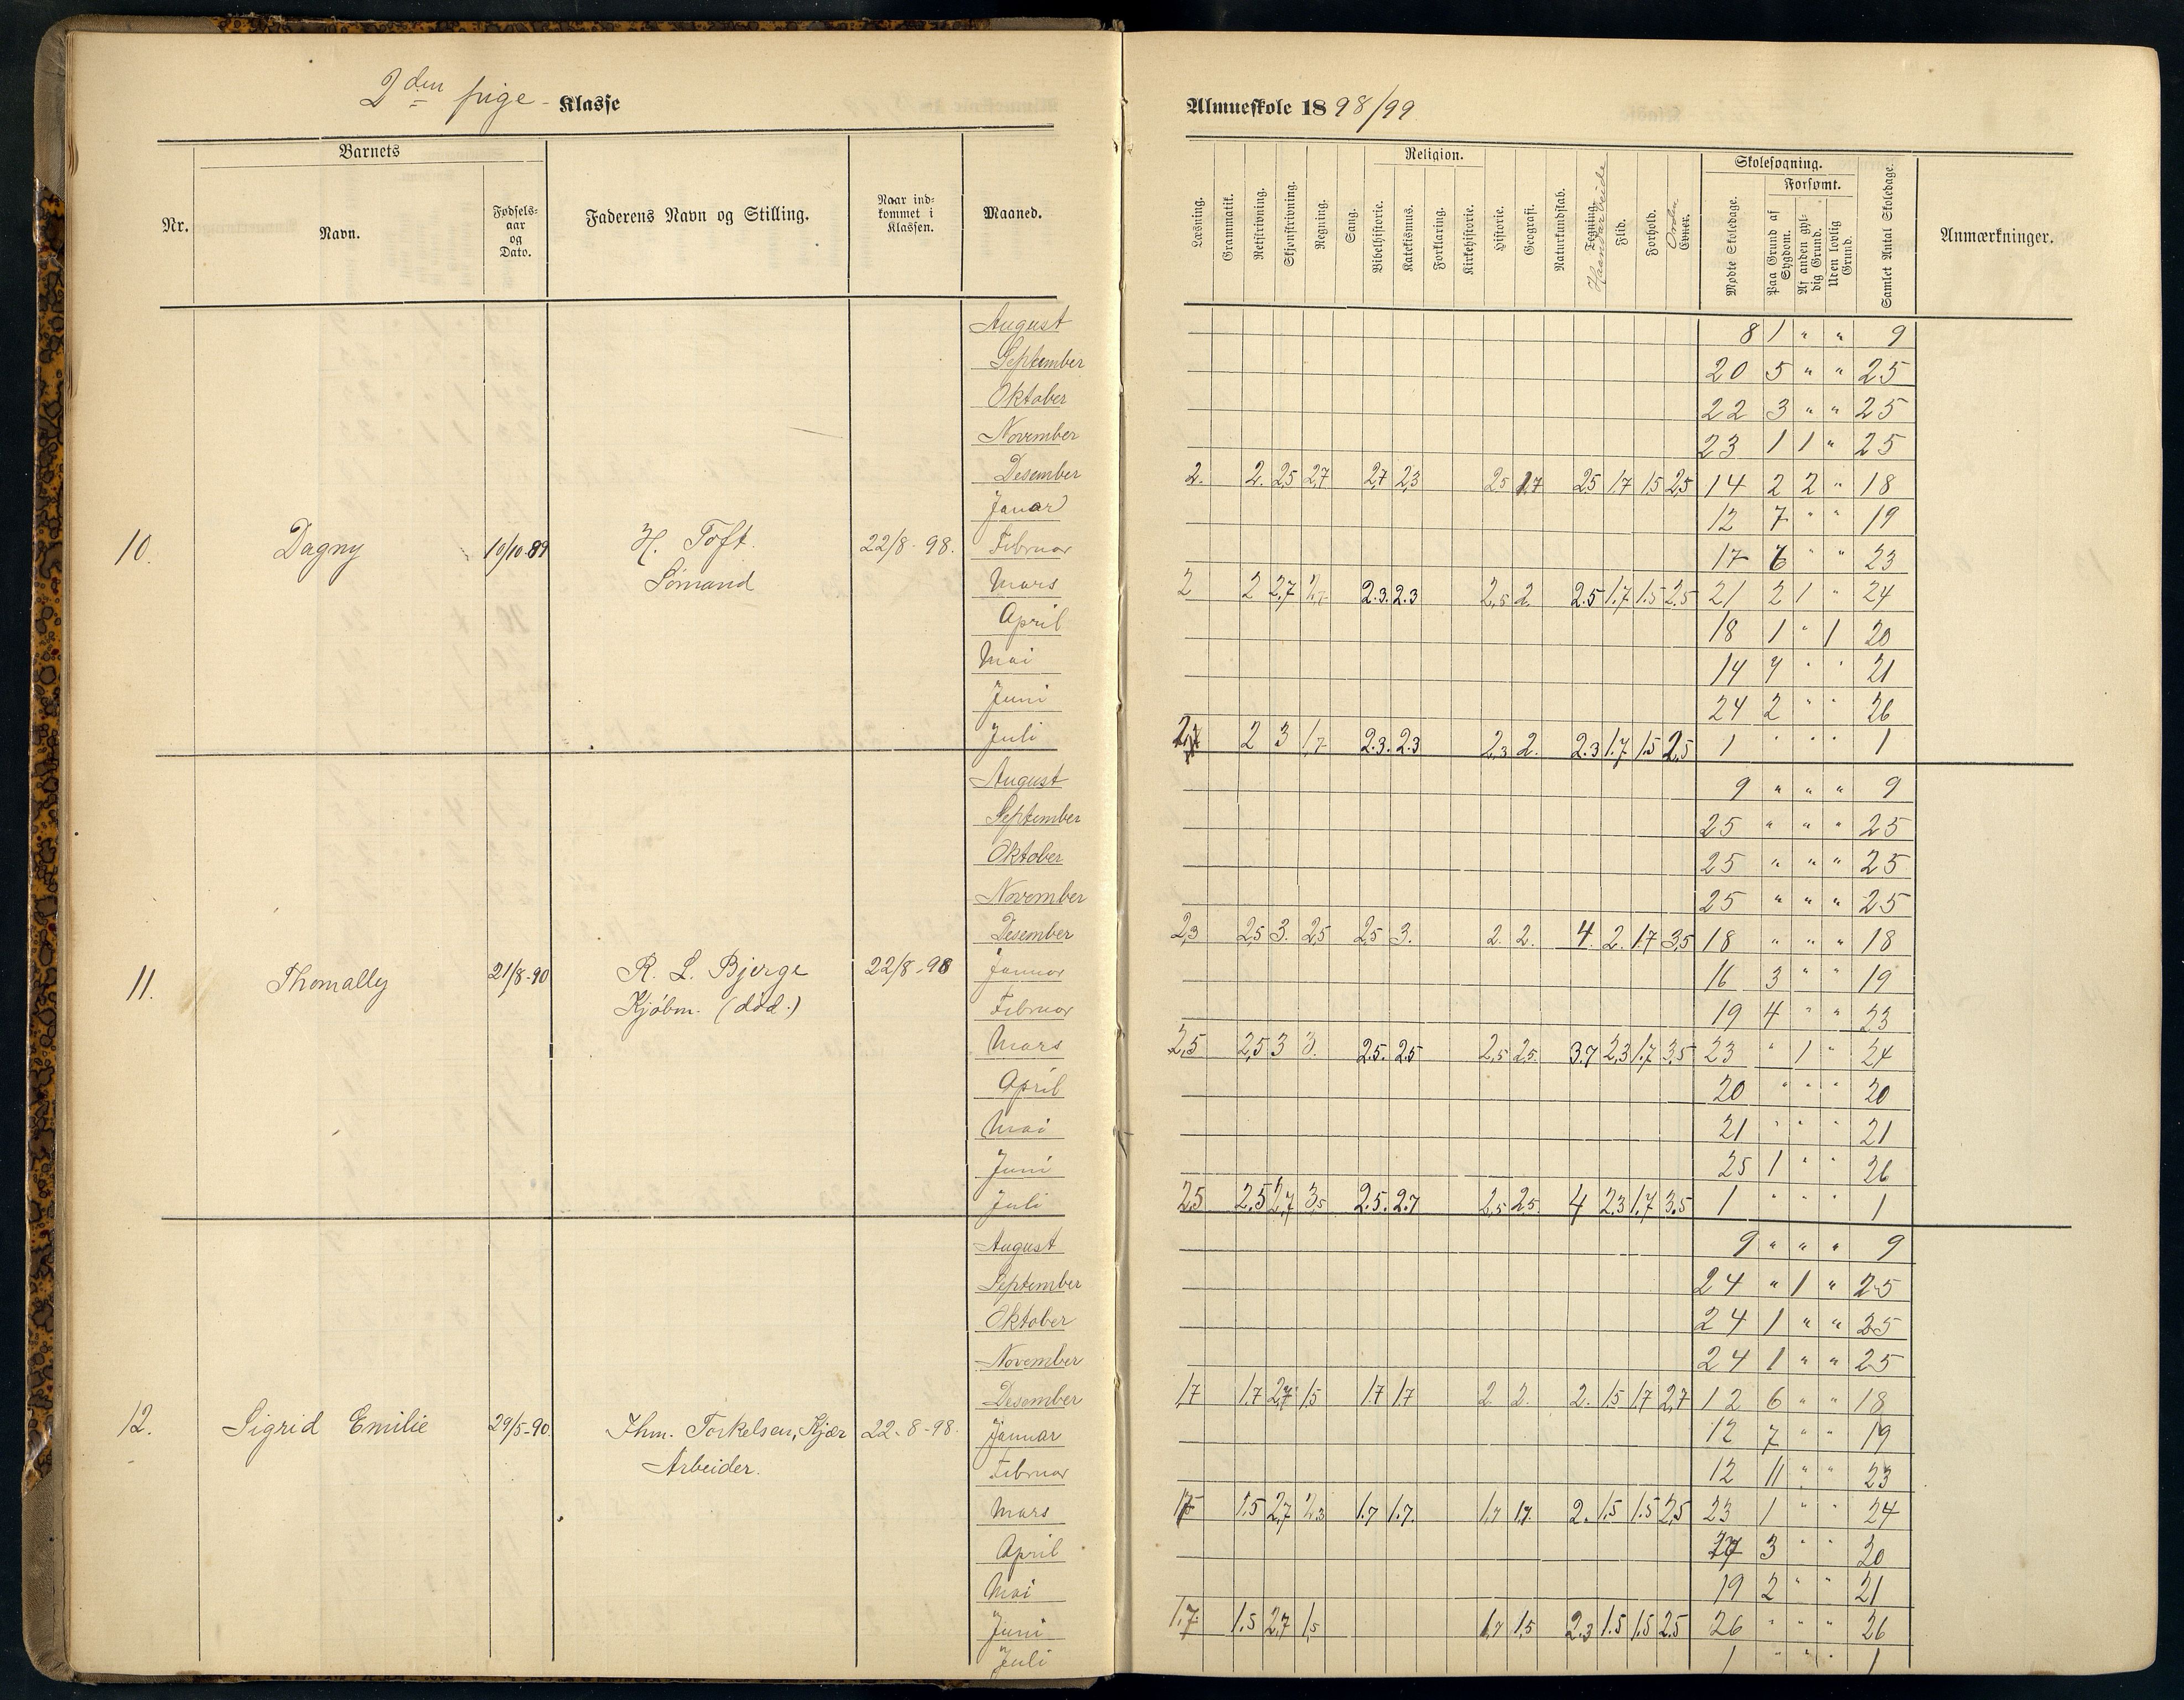 2den pige- Klasse
Almueskole 1898/99
Nr. Barnets Navn. Fødselsaar og Dato. Faderens Navn og Stilling. Naar indkommet i Klassen. Maaned.
Læsning. Grammatik. Retskrivning. Skjønskrivning. Regning. Sang. Religion. Bibelhistorie. Katekismus. Forklaring. Kirkehistorie. Historie. Geografi. Naturkundskab. Tegning. Haandarbeide Flid. Forhold. Orden Evner. Skolesøgning. Mødte Skoledage. Forsømt. Paa Grund af Sygdom. Af anden gyldig Grund. Uden lovlig Grund. Samlet Antal Skoledage. Anmærkninger.
10. Dagny 10/10-89 H. Toft. Sømand 22/8-98.
August 8 1 " " 9
September 20 5 " " 25
Oktober 22 3 " " 25
November 23 1 1 " 25
Desember 2. 2. 2,5 2,7 2,7 2,3 2,5 1,7 2,5 1,7 1,5 2,5 14 2 2 " 18
Januar 12 7 " " 19
Februar 17 6 " " 23
Mars 2 2 2,7 2,7 2.3. 2.3 2,5 2. 2.5 1.7 1.5 2.5 21 2 1 " 24
April 18 1 " 1 20
Mai 14 7 " " 21
Juni 24 2 " " 26
Juli 2 3 1,7 2.3. 2.3 2,3 2. 2.3 1.7 1.5 2,5 1 " " " 1
11. Thomally 21/8-90 R. L. Bjerge Kjøbm. (død.) 22/8-98
August 9 " " " 9
September 25 " " " 25
Oktober 25 " " " 25
November 25 " " " 25
Desember 2,3 2,5 3. 2,5 2,5 3. 2. 2. 4. 2. 1.7 3,5 18 " " " 18
Januar 16 3 " " 19
Februar 19 4 " " 23
Mars 2,5 2,5 3 3. 2.5. 2.5 2,5 2,5. 3.7 2,3 1.7 3,5 23 " 1 " 24
April 20 " " " 20
Mai 21 " " " 21
Juni 25 1 " " 26
Juli 2,5 2,5 2,7 3,5 2.5. 2.7 2,5 2,5. 4 2.3 1.7 3.5 1 " " " 1
12. Sigrid Emilie 29/5-90. Thm. Torkelsen, Kjær Arbeider. 22-8-98.
August 9 " " " 9
September 24 " 1 " 25
Oktober 24 1 " " 25
November 24 1 " " 25
Desember 1,7 1.7 2,7 1,5 1.7 1.7 2. 2. 2. 1,5 1,7 2,7 12 6 " " 18
Januar 12 7 " " 19
Februar 12 11 " " 23
Mars 1.5 2,7 2,3 1.7 1.7. 1,7 1,7. 2. 1.5 1.5 2,5 23 1 " " 24
April 17 3 " " 20
Mai 19 2 " " 21
Juni 1.7. 1.5 2,7 1,5 1,7 1,5 2.3 1.5 1.5 2.5 26 " " " 26
Juli 1 " " " 1